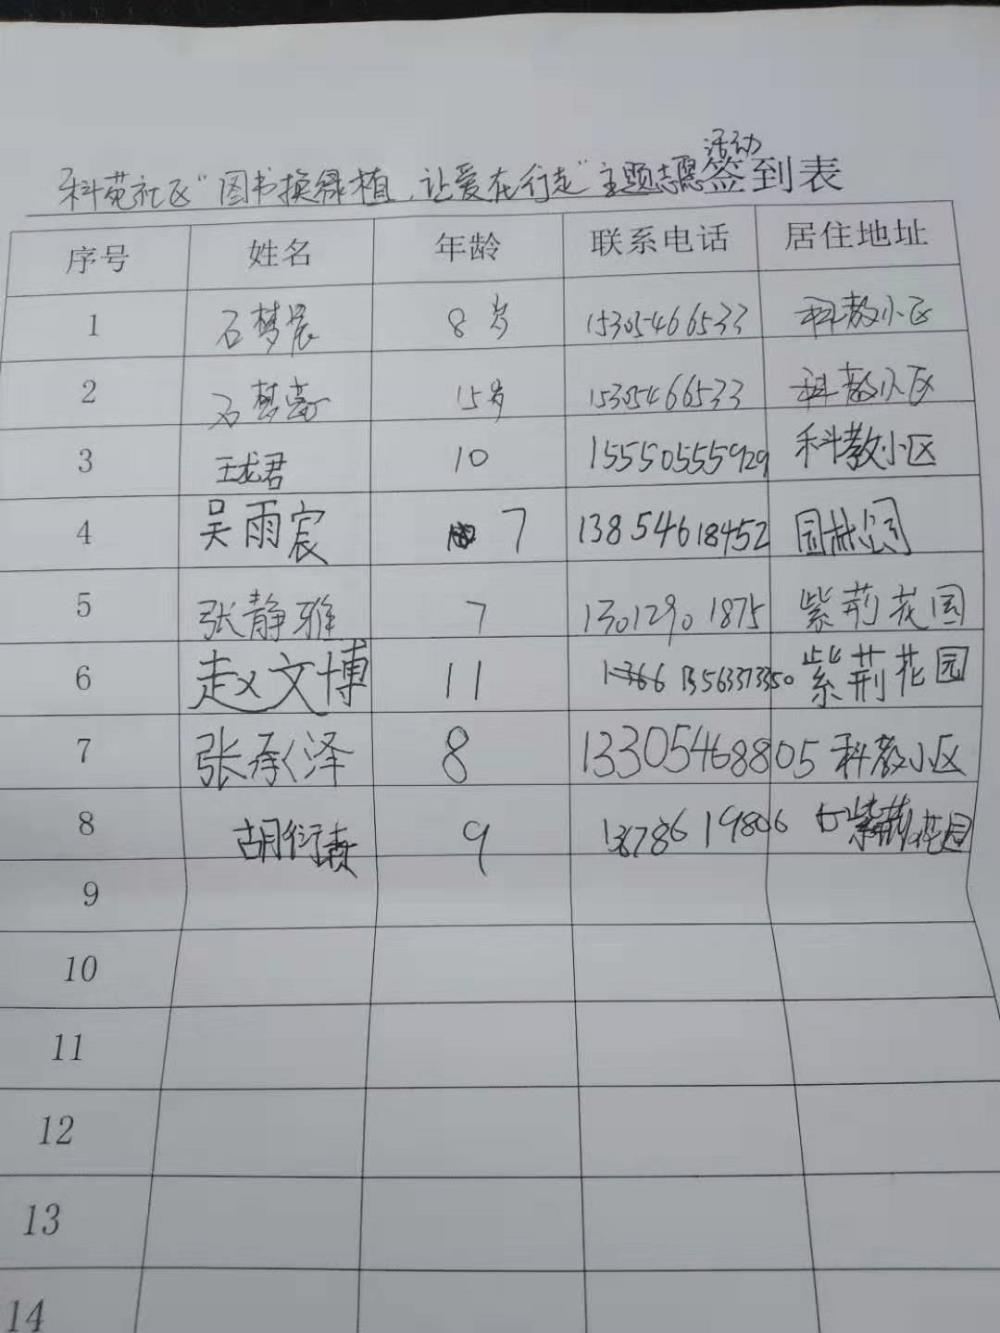 活动
科苑社区“图书换绿植,让爱在行走”主题志愿签到表
序号 姓名 年龄 联系电话 居住地址
1 石梦辰 8岁 15305466533 科教小区
2 石梦豪 15岁 15305466533 科教小区
3 王龙君 10 15550555929 科教小区
4 吴雨宸 7 13854618452 园林公司
5 张静雅 7 13012901875 紫荆花园
6 赵文博 11 13356337350 紫荆花园
7 张承泽 8 13305468805 科教小区
8 胡衍森 9 13678619806 紫荆花园
9
10
11
12
13
14